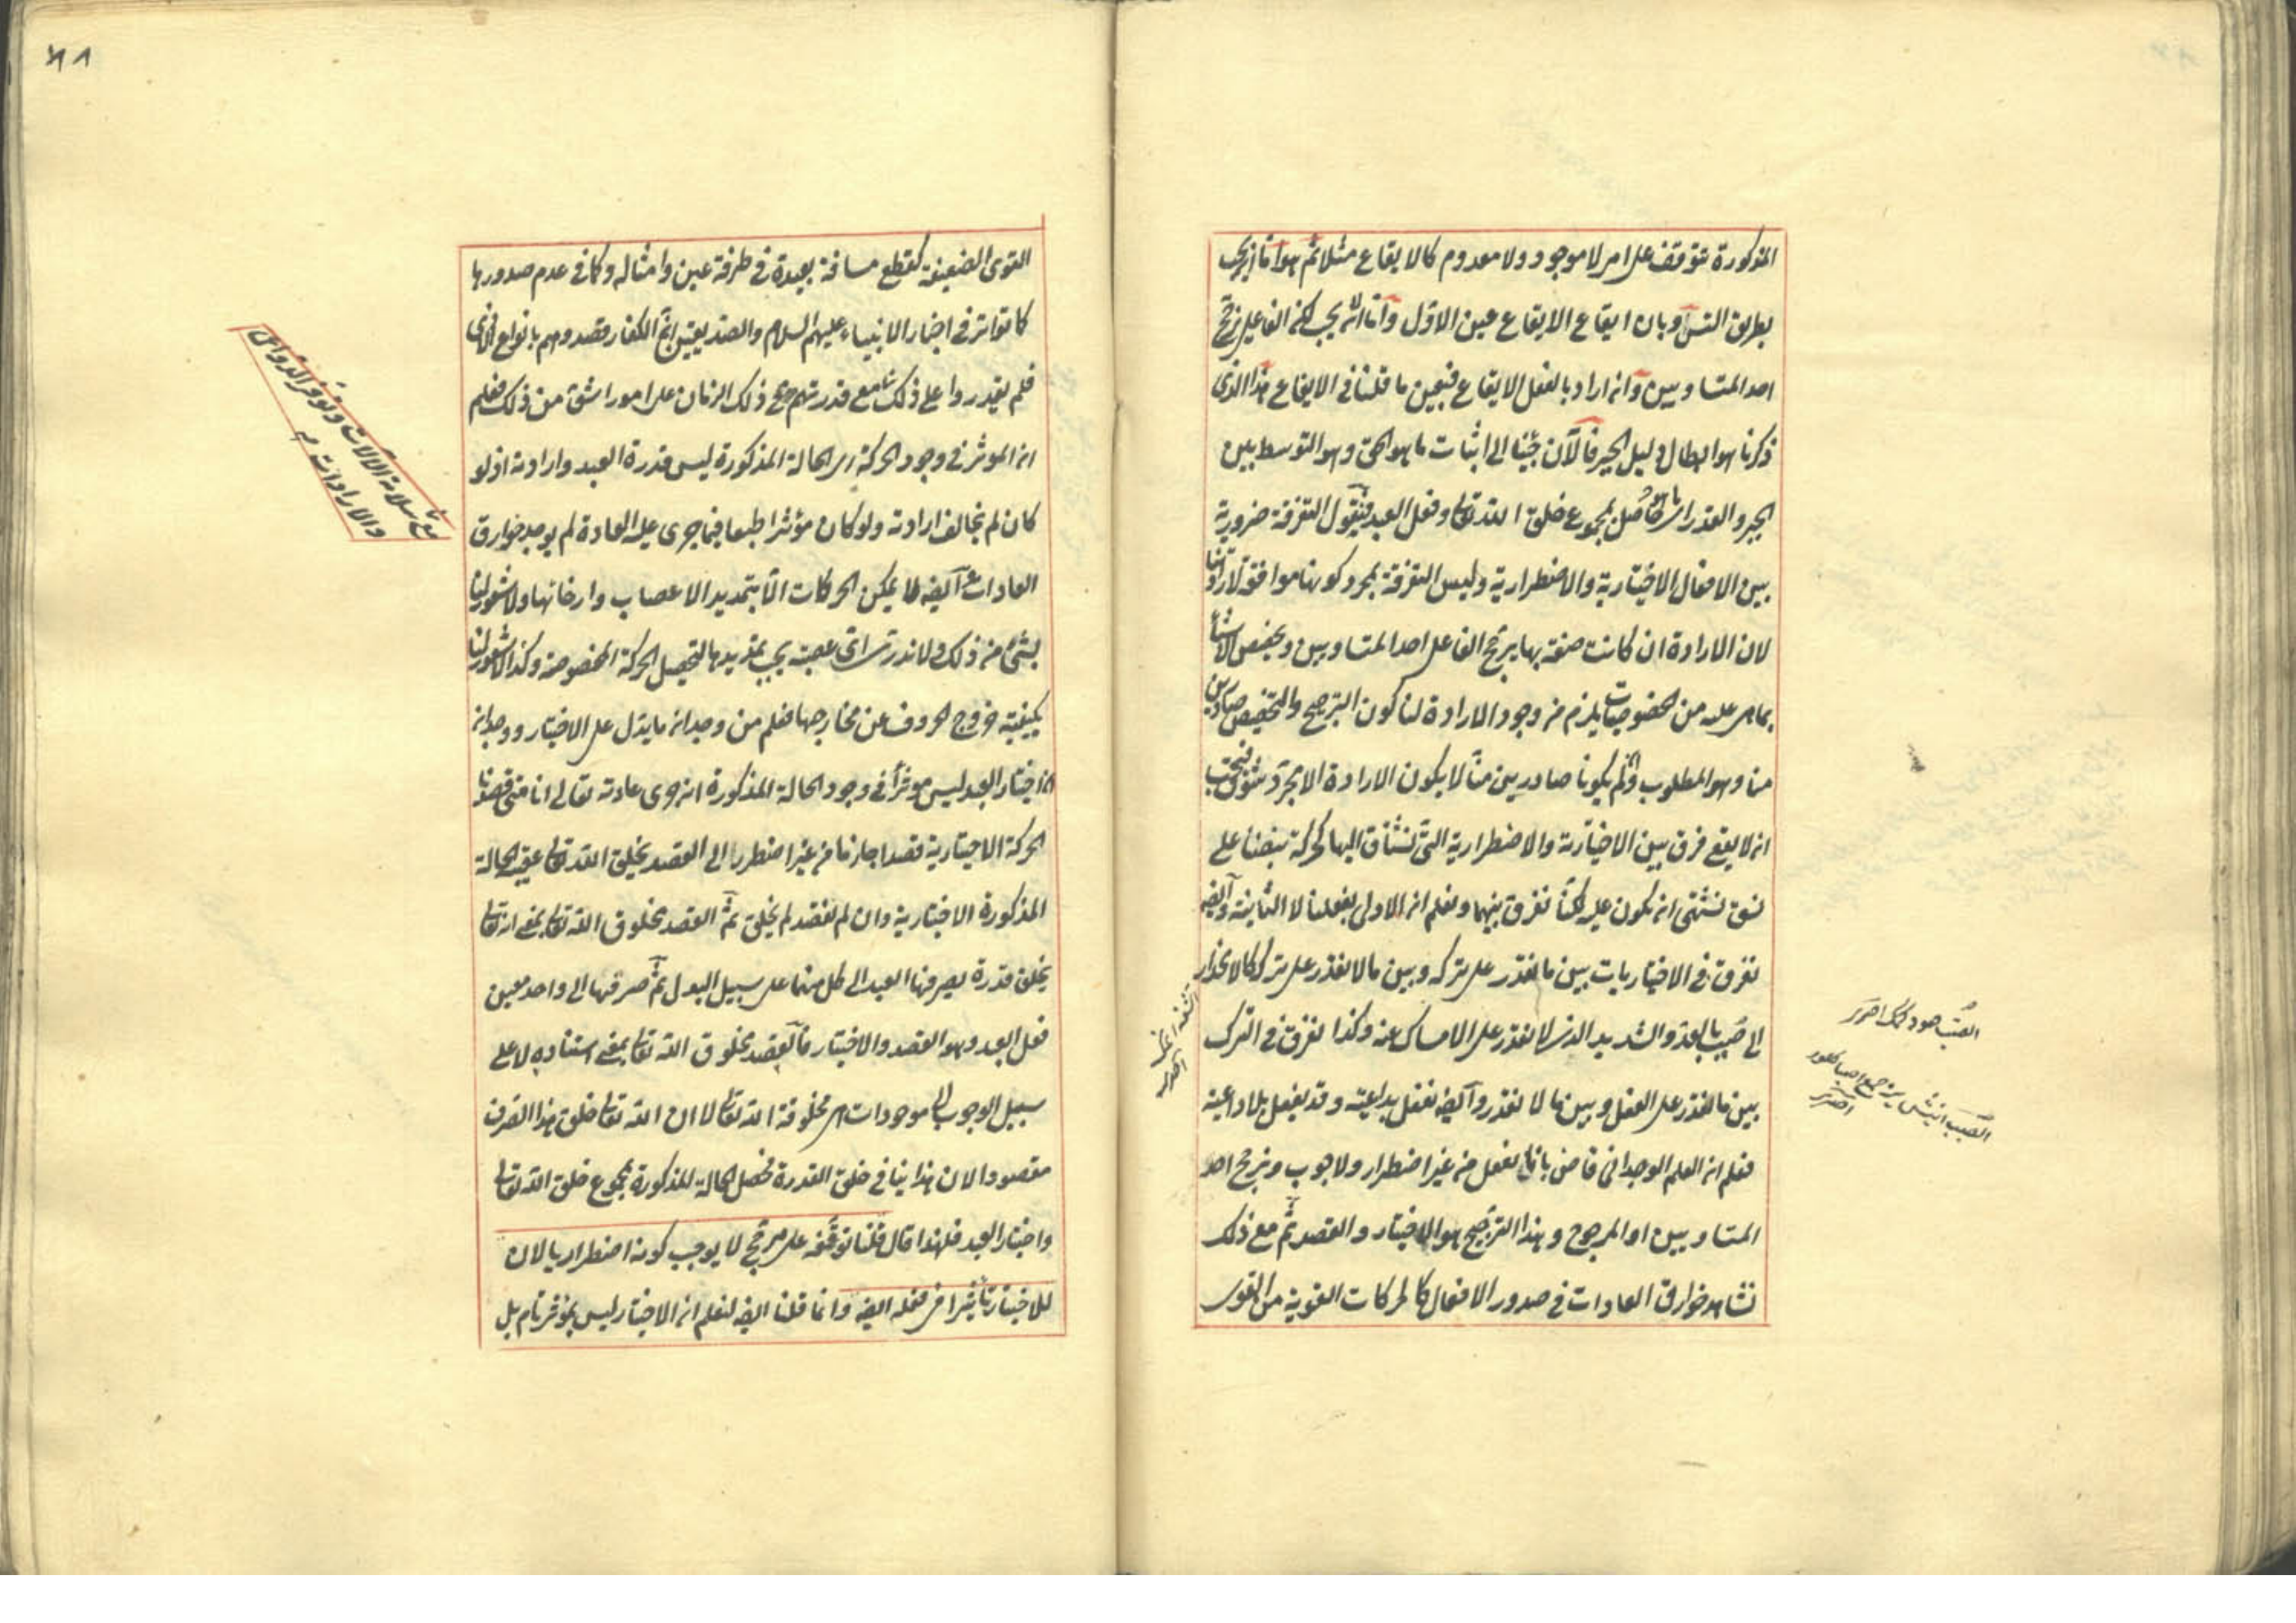 المذكورة تتوقف على امر لا موجود ولا معدوم كالايقاع مثلا ثم هو اما ان يجب
بطريق التس او بان ايقاع الايقاع عين الاول واما ان لا يجب لكن الفاعل يرجح
احد المتساويين وانه اراد بالفعل الايقاع فبعين ما قلنا في الايقاع هذا الذي
ذكرنا هو ابطال دليل الجبر فالآن جئنا الى اثبات ما هو الحق وهو التوسط بين
الجبر والقدر اى حاصل بمجموع خلق الله تعالى وفعل العبد فنقول التفرقة ضرورية
بين الافعال الاختيارية والاضطرارية وليس التفرقة بمجرد كونها موافقة لارادتنا
لان الارادة ان كانت صفة بها يرجح الفاعل احد المتساويين ويخصص الاشياء
بما هى عليه من الخصوصيات يلزم من وجود الارادة لنا كون الترجيح والتخصيص صادرين
منا وهو المطلوب وان لم يكونا صادرين منا لا يكون الارادة الا مجرد شوق فيجب
ان لا يقع فرق بين الاختيارية والاضطرارية التى نشتاق اليها كحركة نبضنا على
نسق نشتهى ان يكون عليه لكنا نفرق بينهما ونعلم ان الاولى بفعلنا لا الثانية وايضا
نفرق فى الاختياريات بين ما نقدر على تركه وبين ما لا نقدر على تركه كالانحدار
الى صبب بالعدو الشديد الذى لا نقدر على الامساك عنه وكذا نفرق فى الترك
بين ما نقدر على الفعل وبين ما لا نقدر وايضا نفعل بداعية وقد نفعل بلا داعية
فعلم ان العلم الوجدانى قاض بانا نفعل من غير اضطرار ولا وجوب ونرجح احد
المتساويين او المرجوح وهذا الترجيح هو الاختيار والقصد ثم مع ذلك
نشاهد خوارق العادات فى صدور الافعال كالحركات القوية من القوى
الصبب انيش
القوى الضعيفة كقطع مسافة بعيدة فى طرفة عين وامثاله وكما فى عدم صدورها
كما تواتر فى اخبار الانبياء عليهم السلام والصديقين ان الكفار قصدوهم بانواع الاذى
فلم يقدروا على ذلك مع قدرتهم فى ذلك الزمان على امور اشق من ذلك فعلم
ان المؤثر فى وجود الحركة اى الحالة المذكورة ليس قدرة العبد وارادته اذ لو
كان لم يخالف ارادته ولو كان مؤثرا طبعا فيما جرى عليه العادة لم يوجد خوارق
العادات ايضا لا يمكن الحركات الا بتمديد الاعصاب وارخائها ولا شعور لنا
بشئ من ذلك ولا ندرى اى عصبة يجب تمديدها لتحصيل الحركة المخصوصة وكذا لا شعور لنا
بكيفية خروج الحروف عن مخارجها فعلم من وجدان ما يدل على الاختيار ووجدان
ان اختيار العبد ليس مؤثرا فى وجود الحالة المذكورة انه جرى عادته تعالى انا متى قصدنا
الحركة الاختيارية قصدا جازما من غير اضطرار الى القصد يخلق الله تعالى عقيبه الحالة
المذكورة الاختيارية وان لم نقصد لم يخلق ثم القصد مخلوق الله تعالى بمعنى انه تعالى
يخلق قدرة يصرفها العبد الى كل منهما على سبيل البدل ثم صرفها الى واحد معين
فعل العبد وهو القصد والاختيار فالقصد مخلوق الله تعالى بمعنى استناده لا على
سبيل الوجوب الى موجودات هى مخلوقة الله تعالى لا ان الله تعالى خلق هذا الصرف
مقصودا لان هذا ينافى خلق القدرة فحصل الحالة المذكورة بمجموع خلق الله تعالى
واختيار العبد فلهذا قال قلنا توقفه على مرجح لا يوجب كونه اضطراريا لان
للاختيار تأثيرا فى فعله ايضا وانما قلنا ايضا لنعلم ان الاختيار ليس بمؤثر تام بل
مع سلامة الآلات وتوفر الدواعى
والارادات